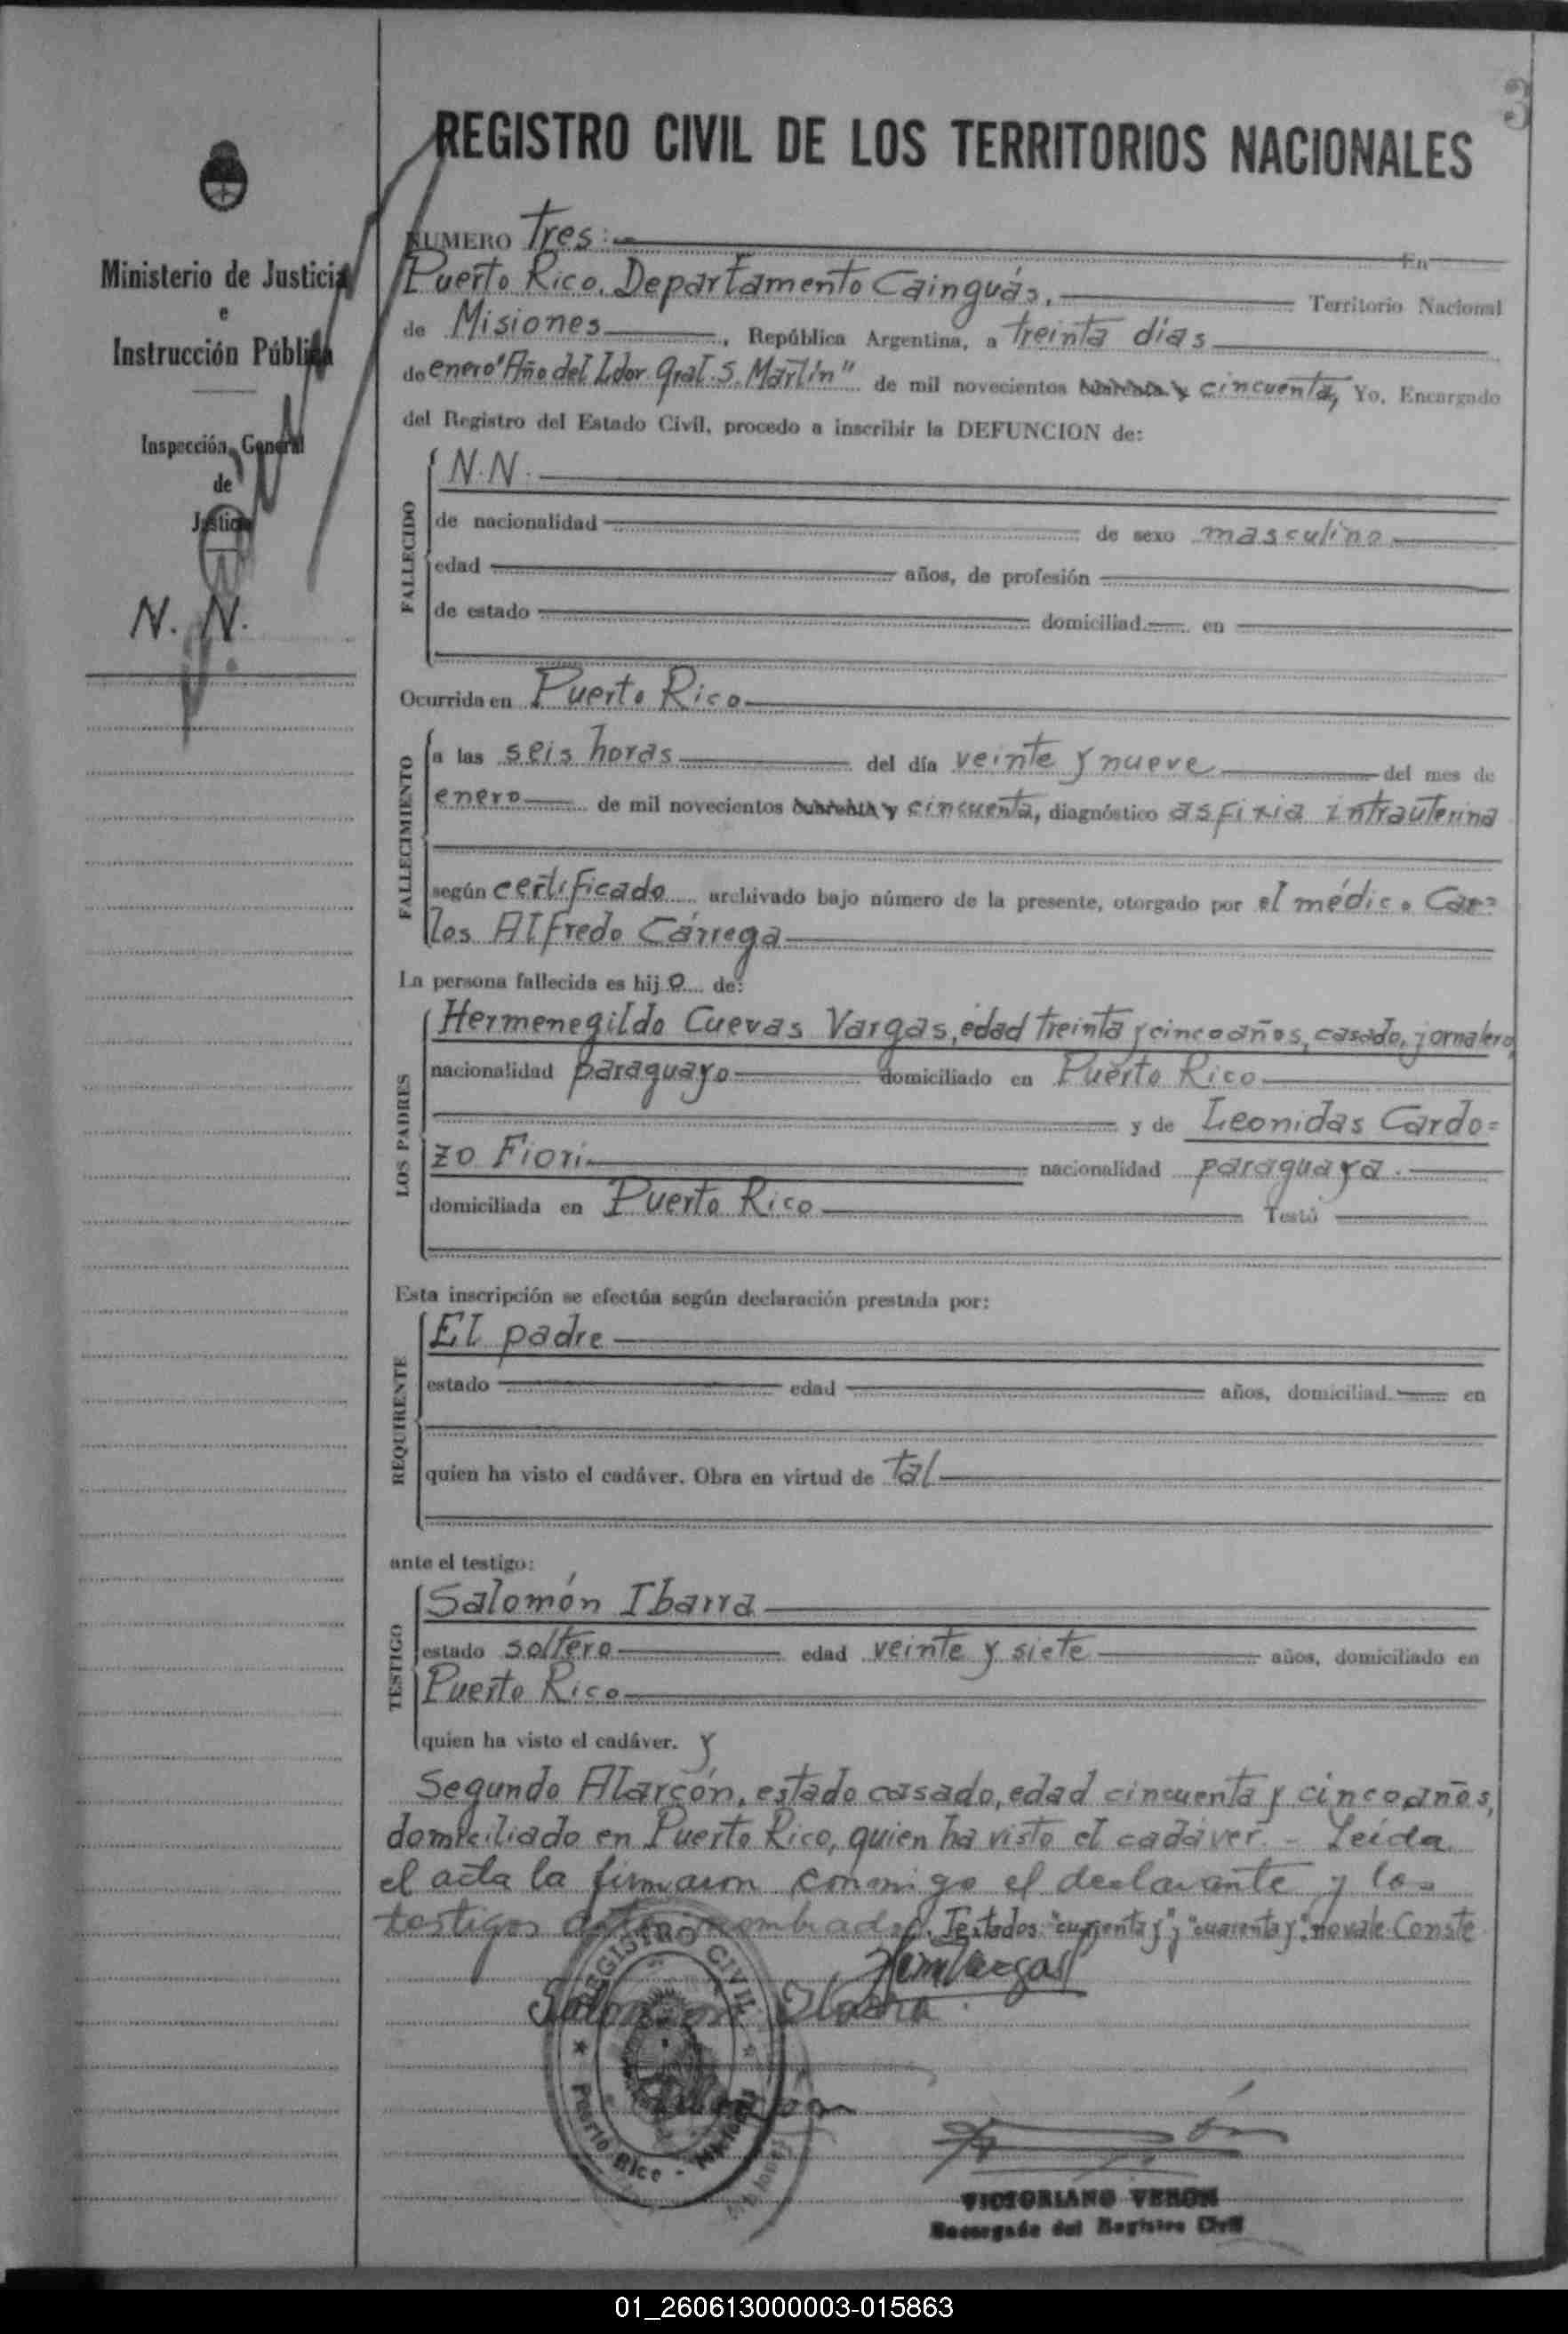 3
REGISTRO CIVIL DE LOS TERRITORIOS NACIONALES
Ministerio de Justicia
e
Instrucción Pública
Inspección General
de
Justicia
N. N.
NUMERO Tres:- En
Puerto Rico, Departamento Cainguás, Territorio Nacional
de Misiones, República Argentina, a treinta días
de enero "Año del Ldor. Gral. S. Martín" de mil novecientos cuarenta y cincuenta, Yo, Encargado
del Registro del Estado Civil, procedo a inscribir la DEFUNCION de:
FALLECIDO
N. N.
de nacionalidad de sexo masculino
edad años, de profesión
de estado domiciliad en
Ocurrida en Puerto Rico
FALLECIMIENTO
a las seis horas del día veinte y nueve del mes de
enero de mil novecientos cuarenta y cincuenta, diagnóstico asfixia intrauterina
según certificado archivado bajo número de la presente, otorgado por el médico Car=
los Alfredo Cárrega
La persona fallecida es hijo de:
LOS PADRES
Hermenegildo Cuevas Vargas, edad treinta y cinco años, casado, jornalero,
nacionalidad paraguayo domiciliado en Puerto Rico
y de Leonidas Cardo=
zo Fiori nacionalidad paraguaya.
domiciliada en Puerto Rico Testó
Esta inscripción se efectúa según declaración prestada por:
REQUIRENTE
El padre
estado edad años, domiciliad en
quien ha visto el cadáver. Obra en virtud de tal
ante el testigo:
TESTIGO
Salomón Ibarra
estado soltero edad veinte y siete años, domiciliado en
Puerto Rico
quien ha visto el cadáver. y
Segundo Alarcón, estado casado, edad cincuenta y cinco años,
domiciliado en Puerto Rico, quien ha visto el cadáver. - Leída
el acta la firmaron conmigo el declarante y los
testigos antes nombrados. Testados: "cuarenta y"; "cuarenta y": no vale. Conste
HemVargas
Salomon Ibarra
REGISTRO CIVIL
Puerto Rico - Misiones
VICTORIANO VERON
Encargado del Registro Civil
01_260613000003-015863